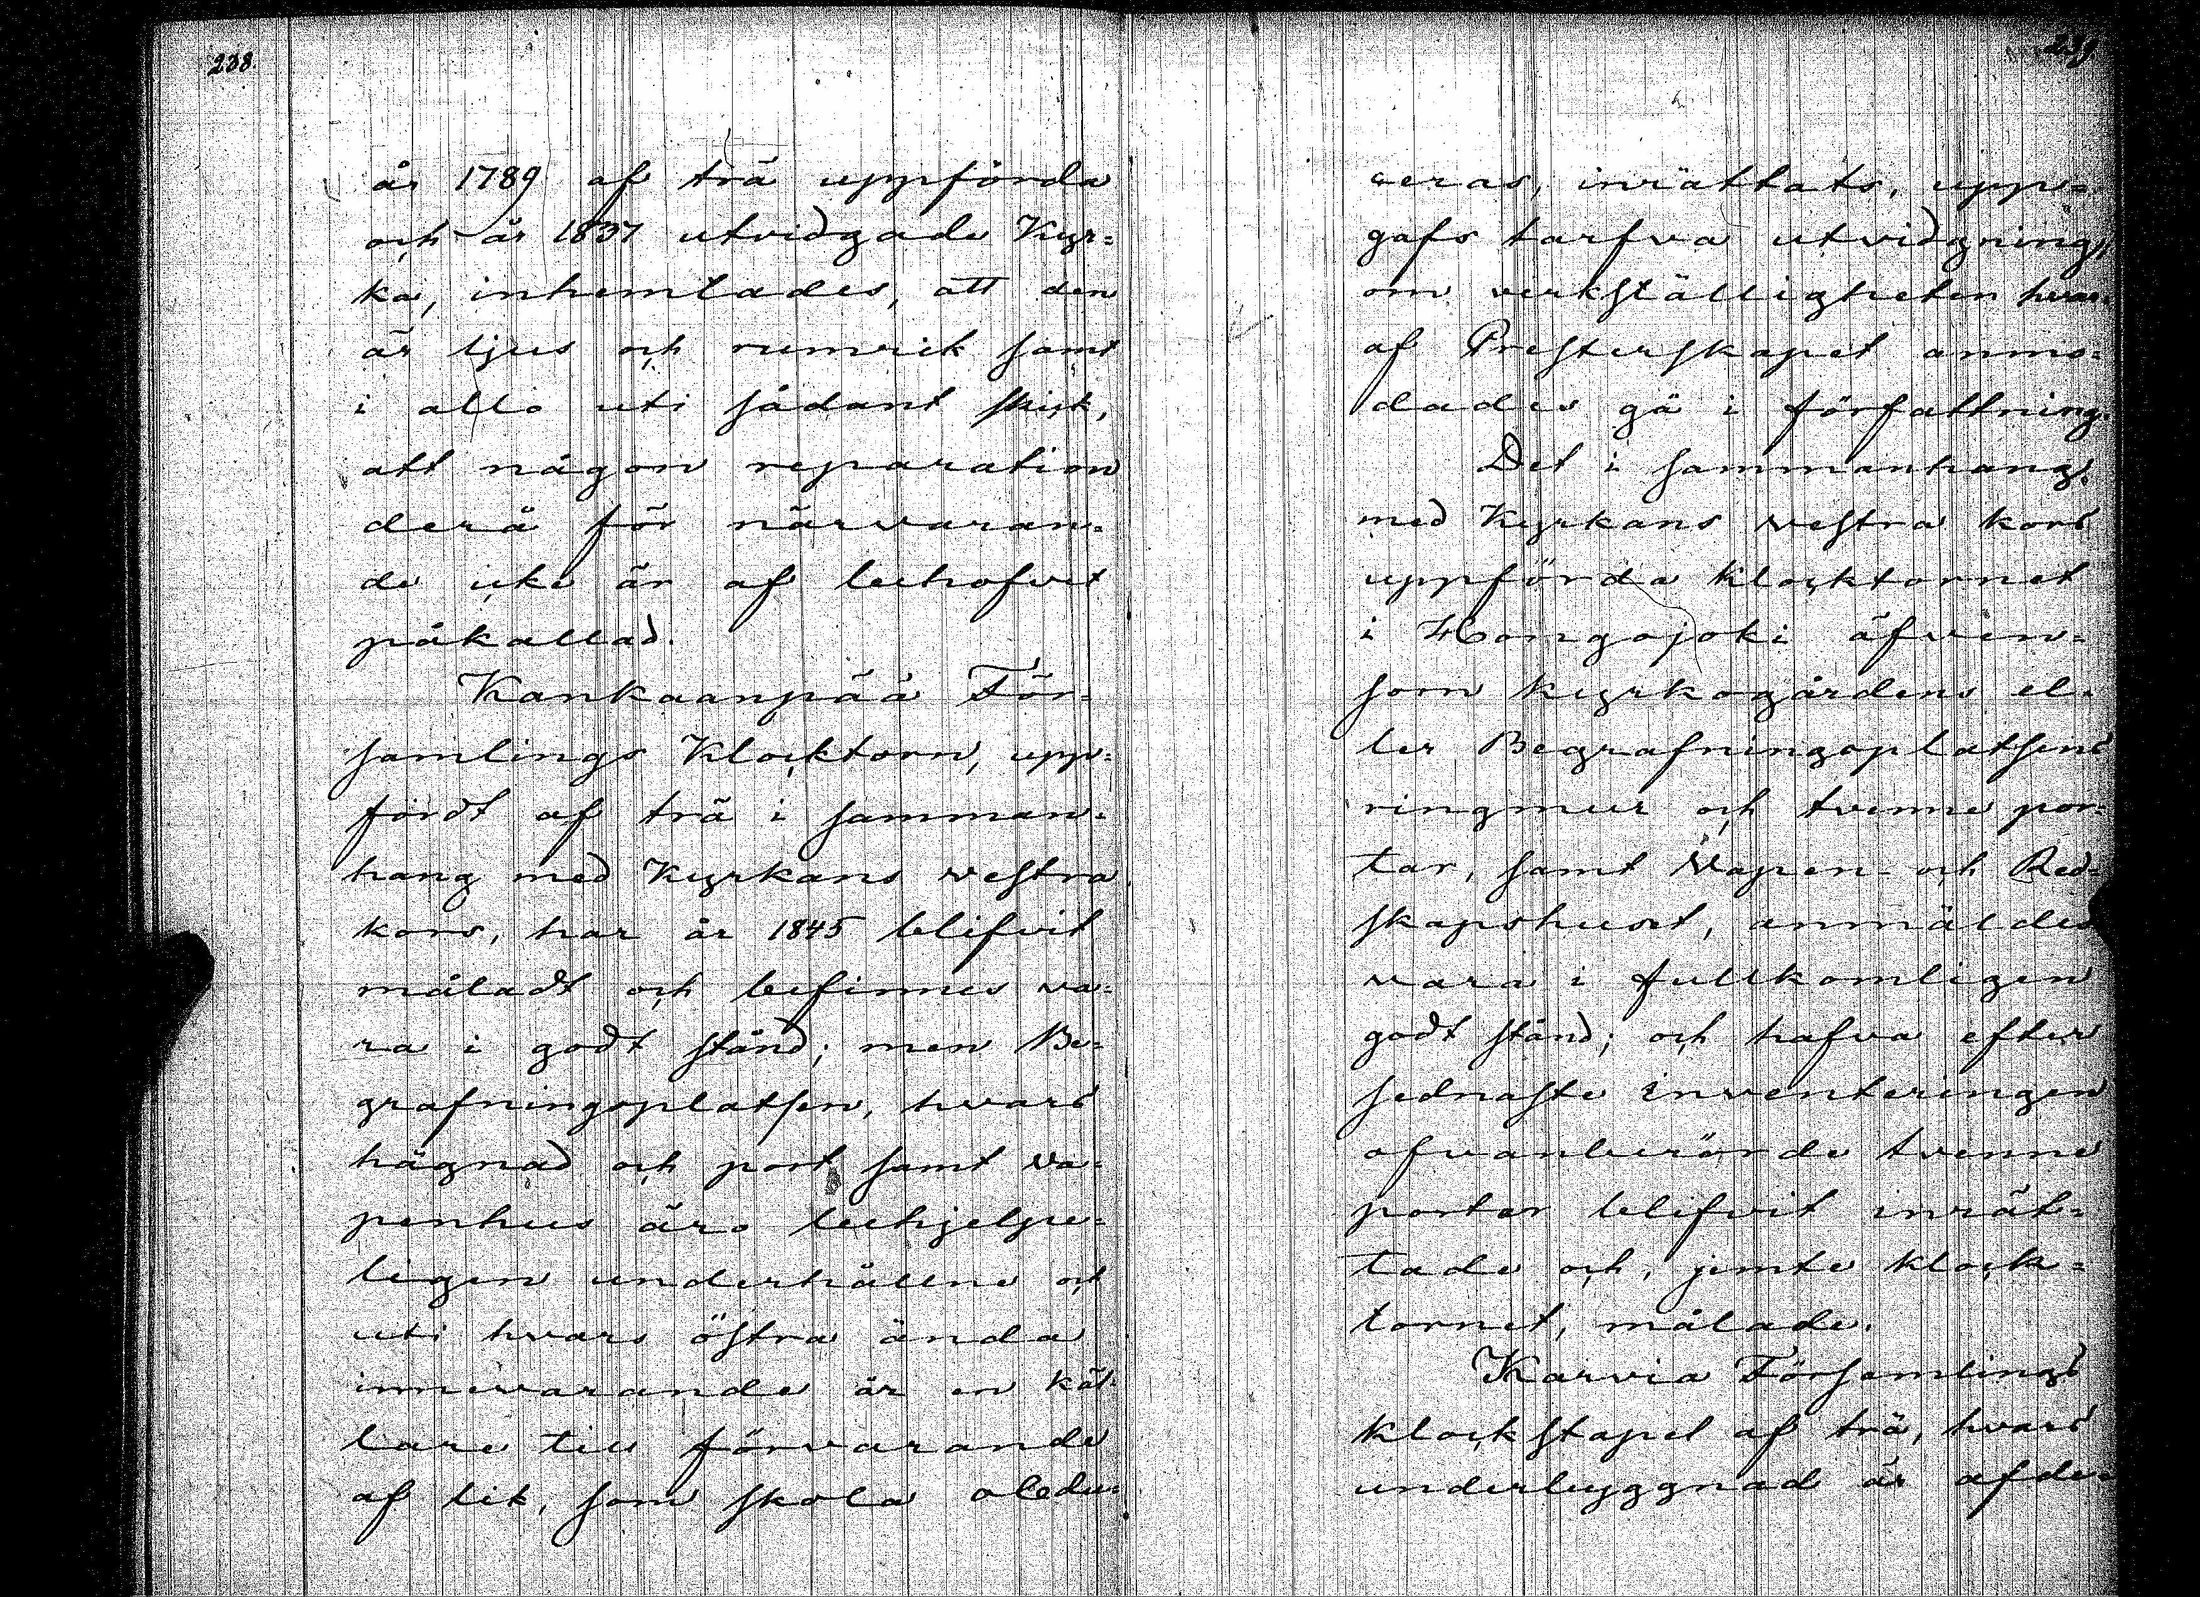 238.
år 1789 af trä uppförda
och år 1837 utvidgade Kyr=
ka, inhemtades, att den
är ljus och rumrik samt
i allo uti sådant skick,
att någon reparation
derå för närvaran=
de icke är af behofvet
påkallad.
Kankaanpää För=
samlings Klocktorn, upp=
fördt af trä i samman=
hang med Kyrkans vestra
kors, har år 1845 blifvit
måladt och befinnes va=
ra i godt stånd; men Be=
grafningsplatsen, hvars
hägnad och port samt va=
penhus äro behjelpe=
ligen underhållne och
uti hvars östra ända
innevarande är en käl=
lare till förvarande
af lik, som skola obdu=
239.
ceras, inrättats, upp=
gafs tarfva utvidgning,
om verkställigheten hvar=
af Presterskapet anmo=
dades gå i författning.
Det i sammanhang
med Kyrkans vestra kors
uppförda klocktornet
i Hongojoki äfven=
som kyrkogårdens el=
ler Begrafningsplatsens
ringmur och tvenne por=
tar, samt Vapen- och Red=
skapshuset, anmäldes
vara i fullkomligen
godt stånd; och hafva efter
sednaste inventeringen
ofvanberörde tvenne
portar blifvit inrät=
tade och, jemte klock=
tornet, målade.
Karvia Församlings
klockstapel af trä, hvars
underbyggnad är afde=